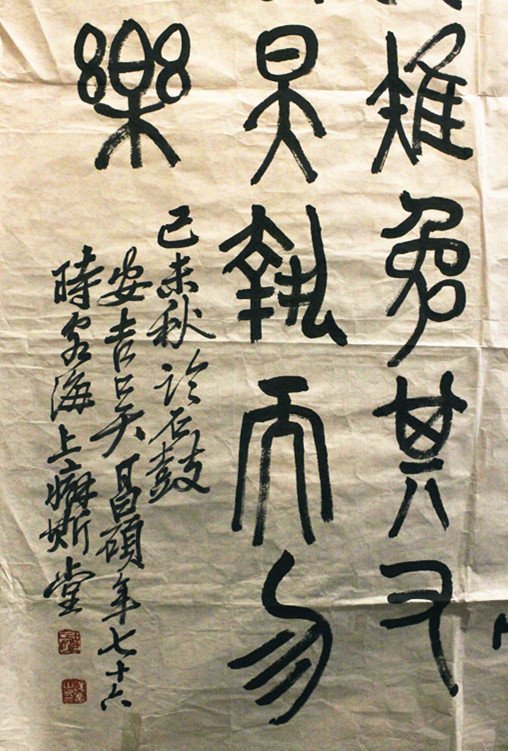 雉兔其又
昊執而勿
樂
己未秋臨石鼓
安吉吳昌碩年七十六
時客海上癖斯堂